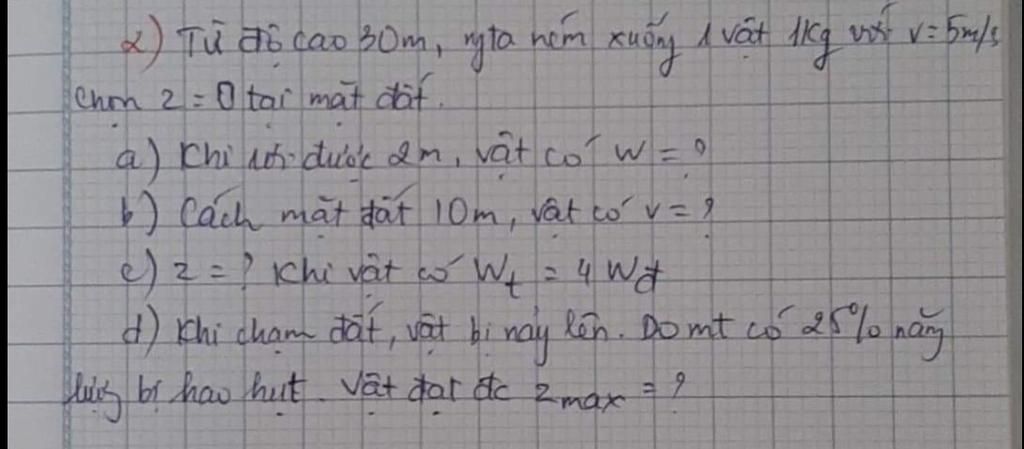 2) Từ độ cao 30m, ngta ném xuống 1 vật 1kg với v = 5m/s
Chọn z = 0 tại mặt đất.
a) Khi rơi được 2m, vật có W = ?
b) Cách mặt đất 10m, vật có v = ?
c) z = ? Khi vật có Wt = 4 Wđ
d) Khi chạm đất, vật bị nảy lên. Do mt có 25% năng
lượng bị hao hụt. Vật đạt đc z max = ?